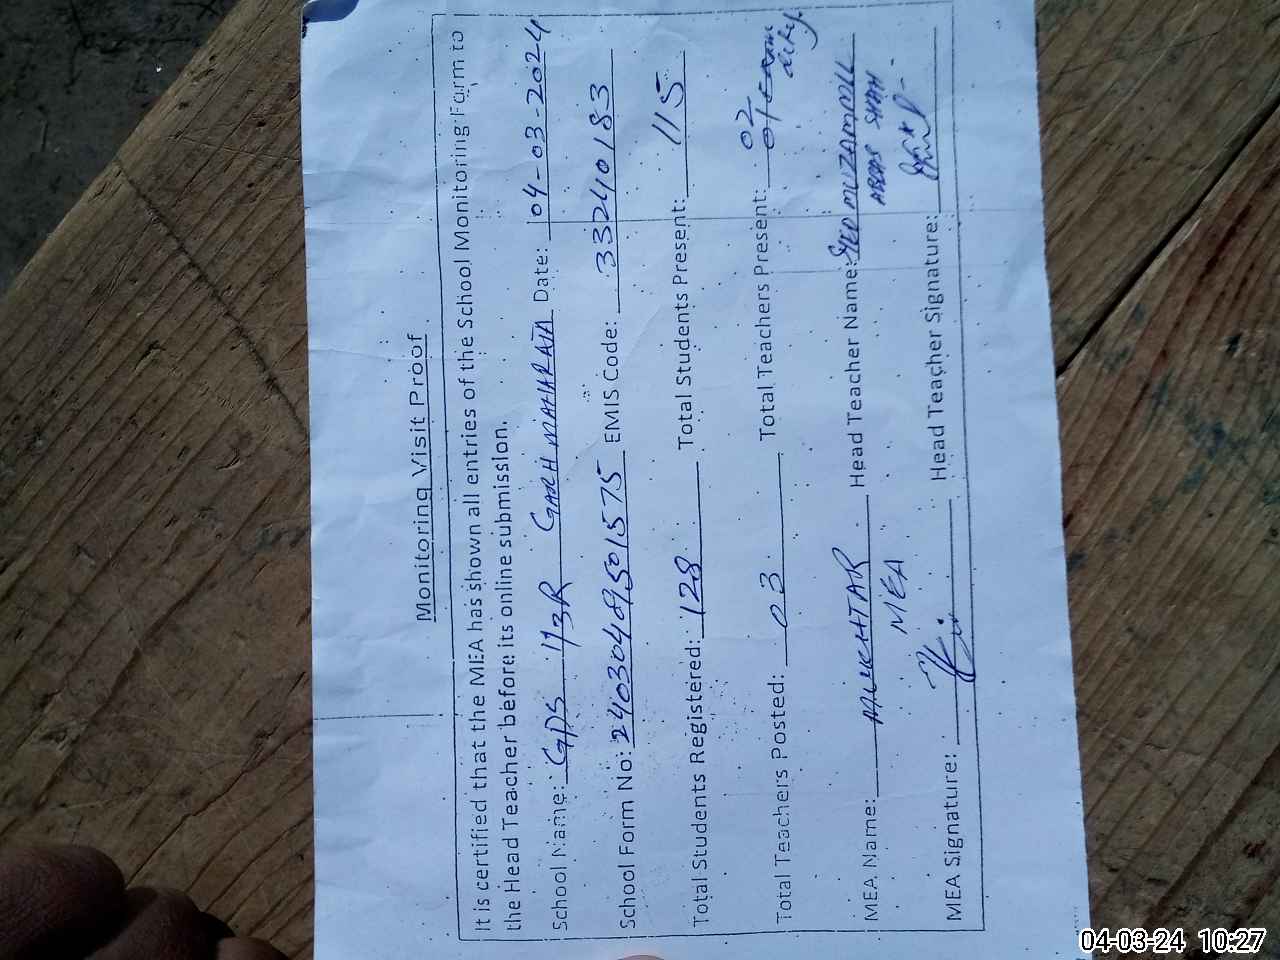 Monitoring Visit Proof
It is certified that the MEA has shown all entries of the School Monitoring Form to
the Head Teacher before its online submission.
School Name: GPS 1/3R GARH MAHARAJA Date: 04-03-2024
School Form No: 24030489501575 EMIS Code: 33240183
Total Students Registered: 128 Total Students Present: 115
02
Total Teachers Posted: 03 Total Teachers Present: 01 exam
duty
MEA Name: MUKHTAR Head Teacher Name: SYED MUZAMMIL
MEA ABBAS SHAH
MEA Signature: Head Teacher Signature:
04-03-24 10:27